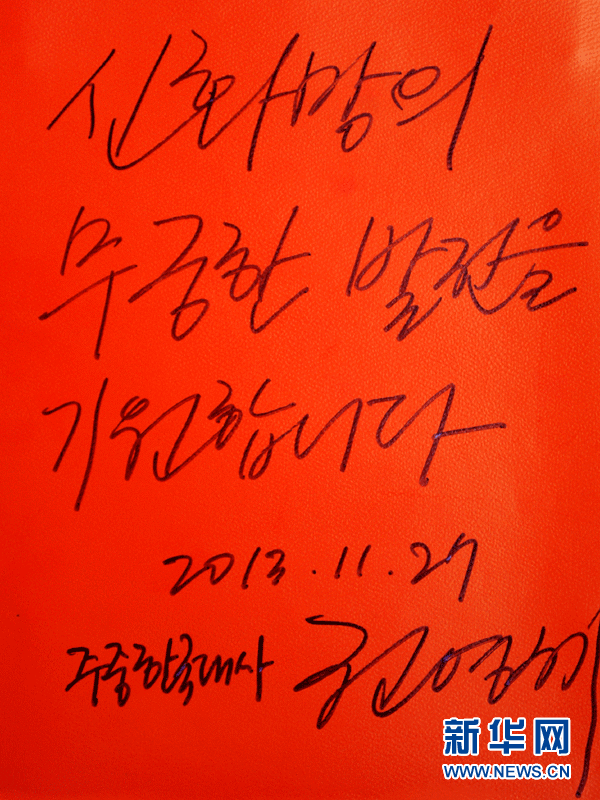 신화망의
무궁한 발전을
기원합니다
2013.11.27
주중한국대사 권영세
新华网
WWW.NEWS.CN